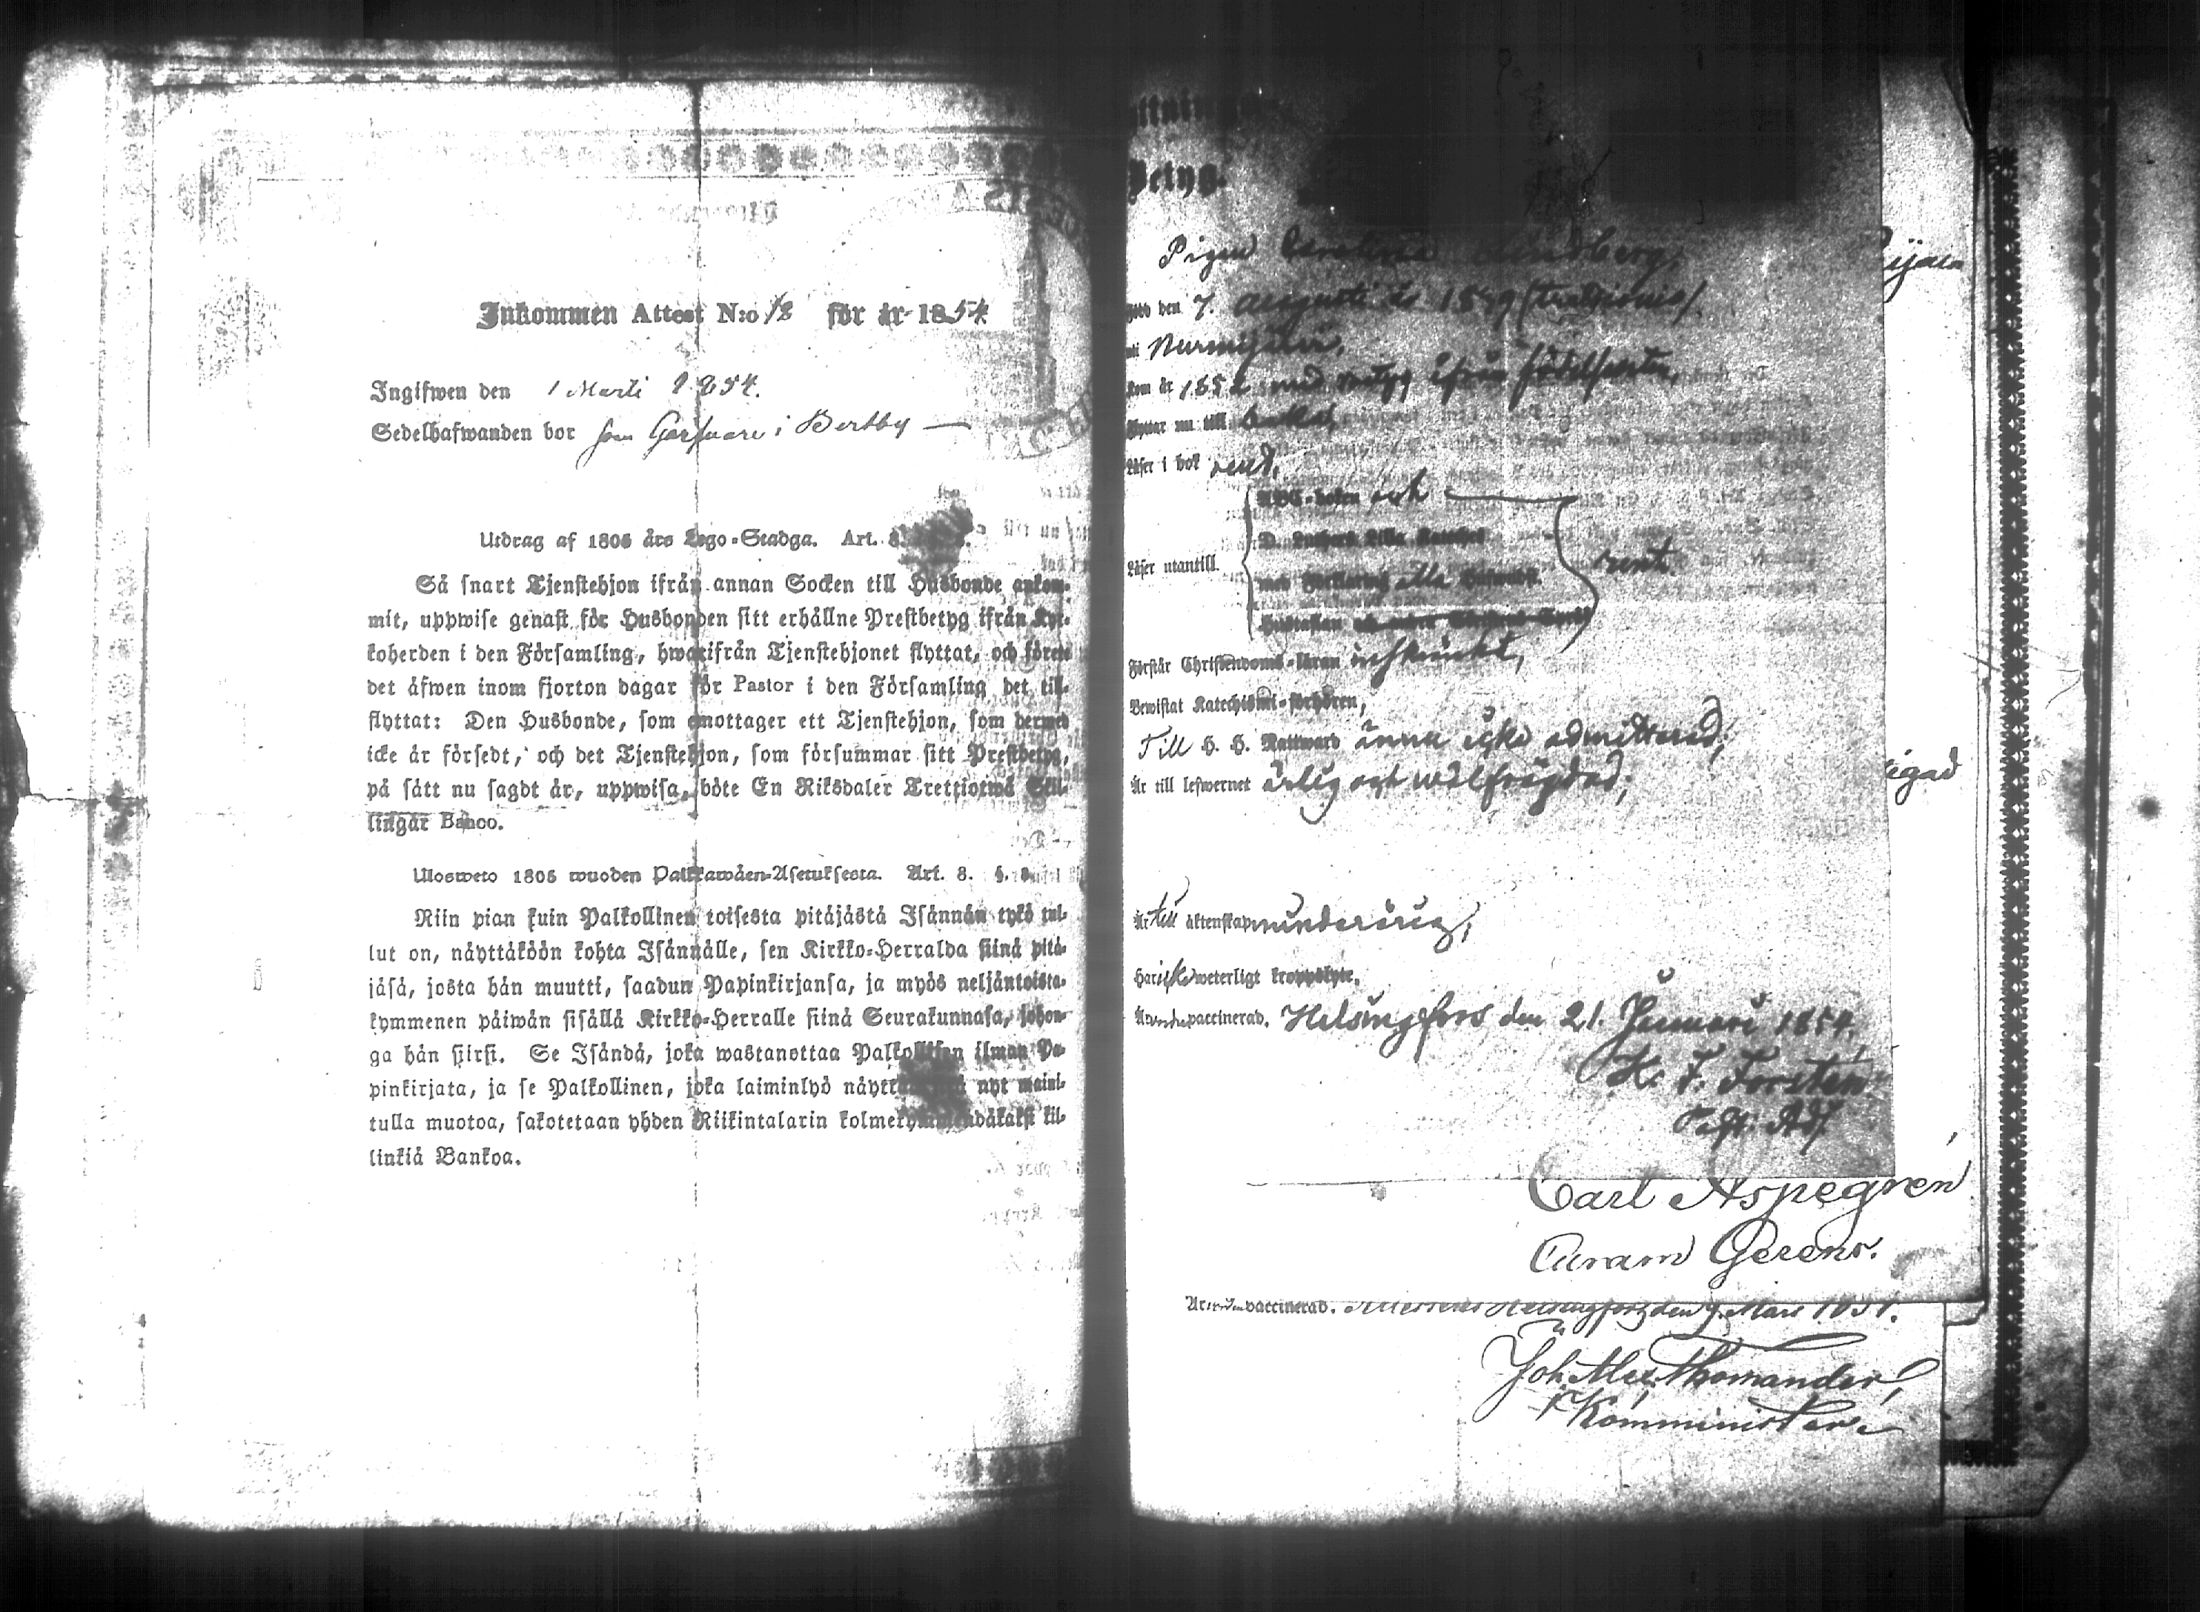 Inkommen Attest N:o 12 för år 1854
Ingifwen den 1 Marti 1854.
Sedelhafwanden bor som Garfvare i Bertby
Utdrag af 1805 års Lego-Stadga. Art. 8.
Så snart Tjenstehjon ifrån annan Socken till Husbonde ankom-
mit, uppwise genast för Husbonden sitt erhållne Prestbetyg ifrån Kyr-
koherden i den Församling, hwarifrån Tjenstehjonet flyttat, och förete
det äfwen inom fjorton dagar för Pastor i den Församling det till-
flyttat: Den Husbonde, som emottager ett Tjenstehjon, som dermed
icke är försedt, och det Tjenstehjon, som försummar sitt Prestbetyg,
på sätt nu sagdt är, uppwisa, böte En Riksdaler Trettiotwå Skil-
lingar Banco.
Ulosweto 1805 wuoden Palkkawäen-Asetuksesta. Art. 8. §.
Niin pian kuin Palkollinen toisesta pitäjästä Isännän tykö tul-
lut on, näyttäköön kohta Isännälle, sen Kirkko-Herralda siinä pitä-
jäsä, josta hän muutti, saadun Papinkirjansa, ja myös neljäntoista-
kymmenen päiwän sisällä Kirkko-Herralle siinä Seurakunnasa, johon-
ga hän siirsi. Se Isändä, joka wastanottaa Palkollisen ilman Pa-
pinkirjata, ja se Palkollinen, joka laiminlyö nyt maini-
tulla muotoa, sakotetaan yhden Riikintalarin kolmekymmendäkaksi kil-
linkiä Bankoa.
Betyg.
Pigan Carolina Lindberg,
född den 7. Augusti år 1839
Nurmijärvi,
kom år 1852 med betyg ifrån födelseorten,
flyttar nu till
Läser i bok rent,
ABC-boken och
D. Luthers Lilla Kateches
Läser utantill. med Förklaring alla Hufwudst. rent.
Hustaflan
Förstår Christendoms-läran inskränkt,
Bewistat Katechismi-förhören,
Till H. H. Nattward ännu icke admitterad;
Är till lefwernet ärlig och wälfrägdad;
Är till äktenskap minderårig,
Har icke weterligt kroppslyte.
Är vaccinerad. Helsingfors den 21. Januari 1854.
K. F. Forstén
Past: Adj.
igad
Carl Aspegren
Curam Gerens.
Är vaccinerad.
Joh. Alex. Thomander,
Komminister.